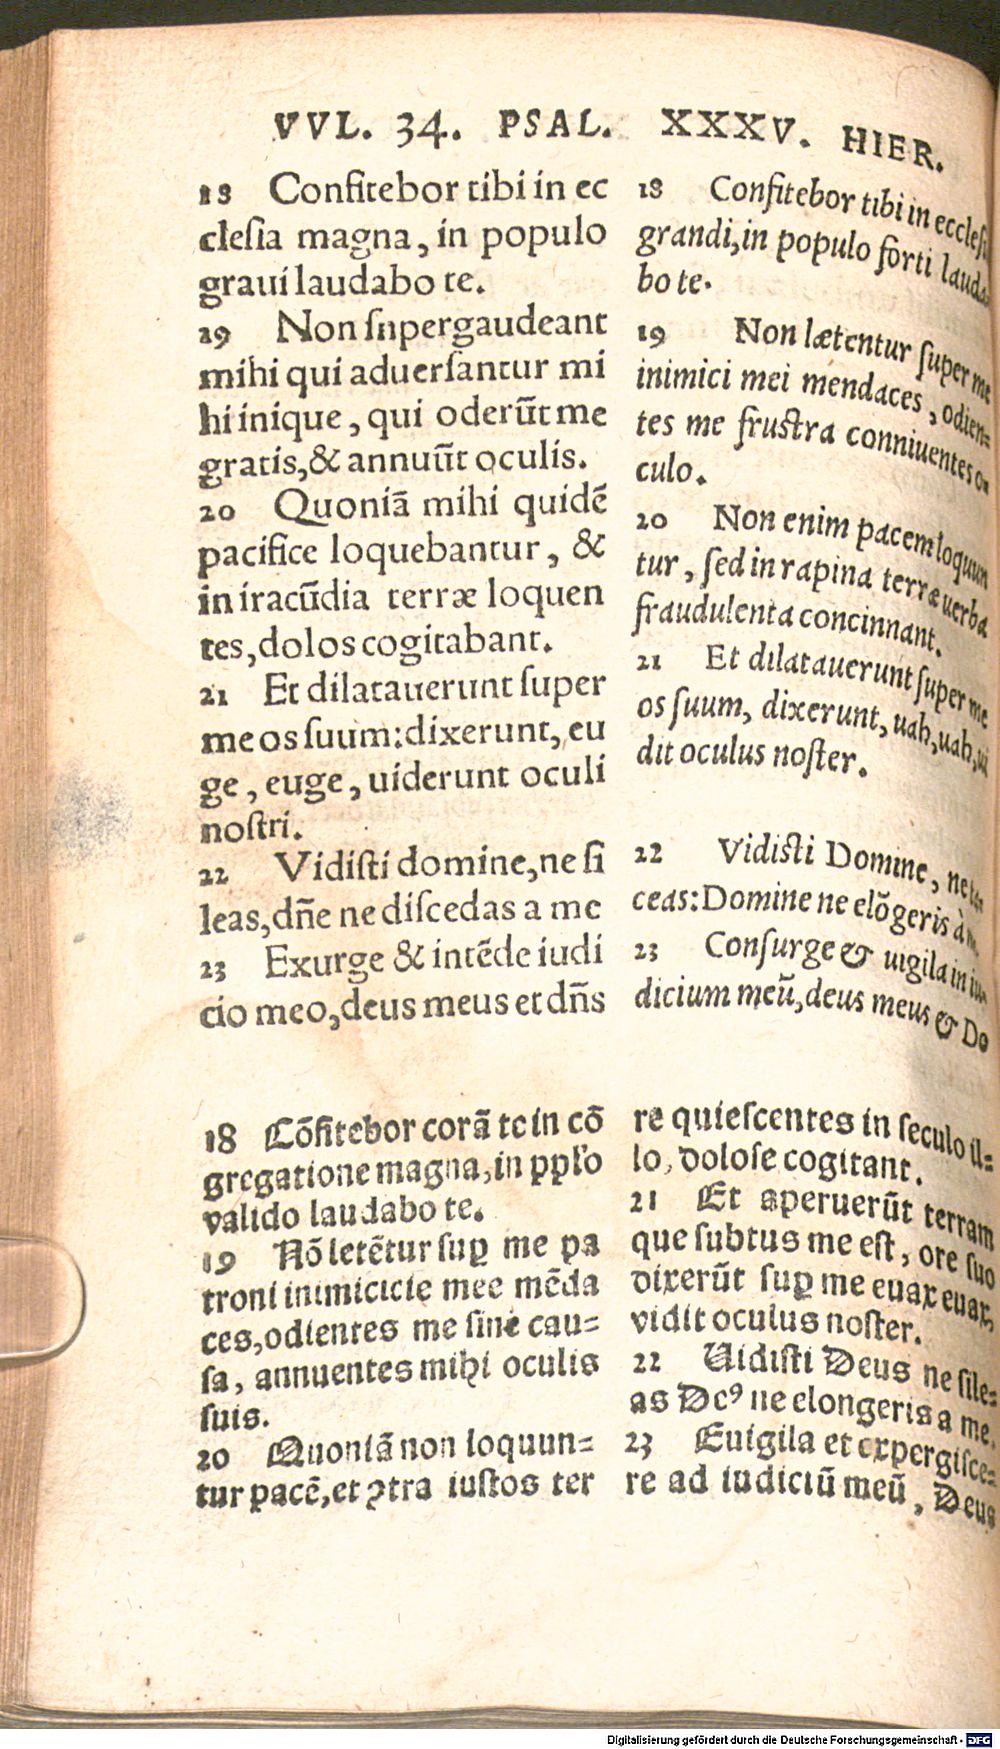 VVL. 34. PSAL. XXXV. HIER.
18 Confitebor tibi in ec
clesia magna, in populo
graui laudabo te.
19 Non supergaudeant
mihi qui aduersantur mi
hi inique, qui oderūt me
gratis, & annuūt oculis.
20 Quoniā mihi quidē
pacifice loquebantur, &
in iracūdia terræ loquen
tes, dolos cogitabant.
21 Et dilatauerunt super
me os suum: dixerunt, eu
ge, euge, uiderunt oculi
nostri.
22 Vidisti domine, ne si
leas, dñe ne discedas a me
23 Exurge & intēde iudi
cio meo, deus meus et dñs
18 Confitebor tibi in ecclesi
grandi, in populo forti lauda
bo te.
19 Non lætentur super me
inimici mei mendaces, odien-
tes me frustra conniuentes o-
culo.
20 Non enim pacem loquun
tur, sed in rapina terræ uerba
fraudulenta concinnant.
21 Et dilatauerunt super me
os suum, dixerunt, uah, uah, ui
dit oculus noster.
22 Vidisti Domine, ne
ceas: Domine ne elōgeris à
23 Consurge & uigila in iu-
dicium meū, deus meus & Do
18 Cōfitebor corā te in cō
gregatione magna, in ppl'o
valido laudabo te.
19 Nō letētur suꝑ me pa
troni inimicicie mee mēda
ces, odientes me sine cau-
sa, annuentes mihi oculis
suis.
20 Quoniā non loquun-
tur pacē, et ꝯtra iustos ter
re quiescentes in seculo il-
lo, dolose cogitant.
21 Et aperuerūt terram
que subtus me est, ore suo
dixerūt suꝑ me euax euax,
vidit oculus noster.
22 Uidisti Deus ne sile-
as Deꝰ ne elongeris a me.
23 Euigila et expergisce-
re ad iudiciū meū, Deus
Digitalisierung gefördert durch die Deutsche Forschungsgemeinschaft - DFG